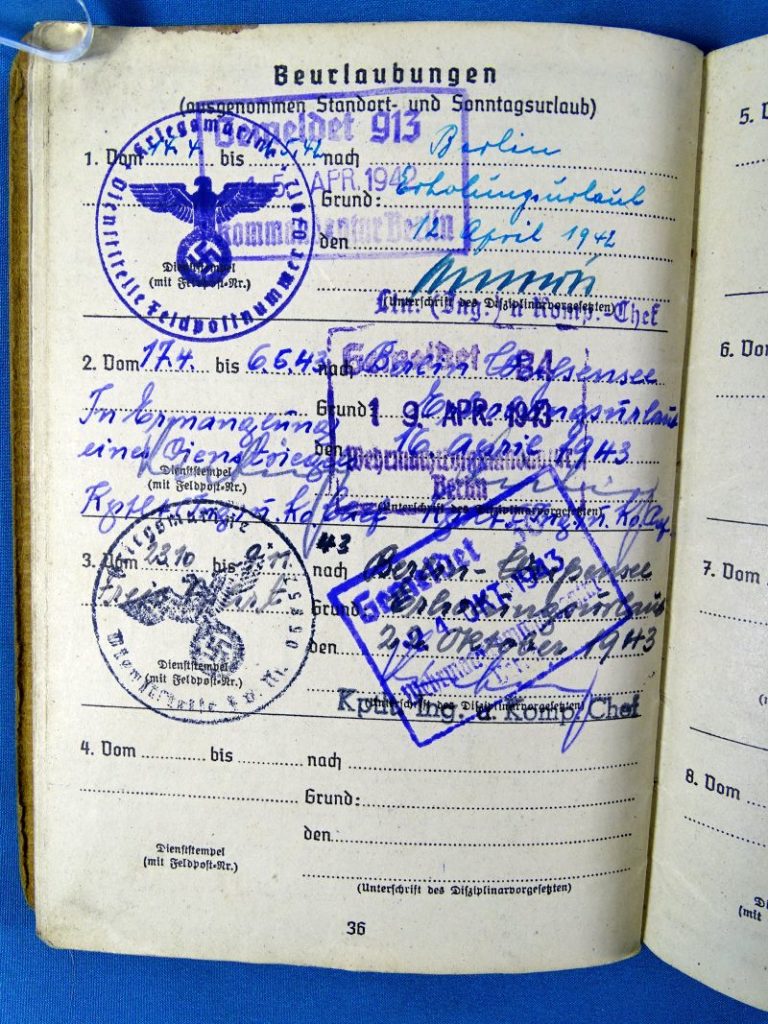 Beurlaubungen
(ausgenommen Standort- und Sonntagsurlaub)
Gemeldet 913
15. APR. 1942
Kommandantur Berlin
1. Vom 14.4. bis 1.5.42 nach Berlin
Grund: Erholungsurlaub
den 12 April 1942
Dienststempel
(mit Feldpost-Nr.)
Kriegsmarine
Dienststelle Feldpostnummer
(Unterschrift des Disziplinarvorgesetzten)
Ltn. (Ing.) u Komp.-Chef
2. Vom 17.4. bis 6.5.43 nach Berlin Weißensee
Gemeldet
Grund: Erholungsurlaub
19. APR. 1943
In Ermanglung
eines Dienstsiegels
den 16 April 1943
Berlin
Dienststempel
(mit Feldpost-Nr.)
(Unterschrift des Disziplinarvorgesetzten)
Kptlt. Ing. u. Ko. Chef Kptlt. Ing. u. Ko. Chef.
Kriegsmarine
3. Vom 23.10 bis 9.11 43 nach Berlin-Weißensee
Gemeldet
OKT. 1943
Grund: Erholungsurlaub
den 22. Oktober 1943
Dienststempel
(mit Feldpost-Nr.)
(Unterschrift des Disziplinarvorgesetzten)
Kptlt. Ing. u. Komp. Chef
4. Vom bis nach
Grund:
den
Dienststempel
(mit Feldpost-Nr.)
(Unterschrift des Disziplinarvorgesetzten)
36
6. Vom
7. Vom
8. Vom
(mit